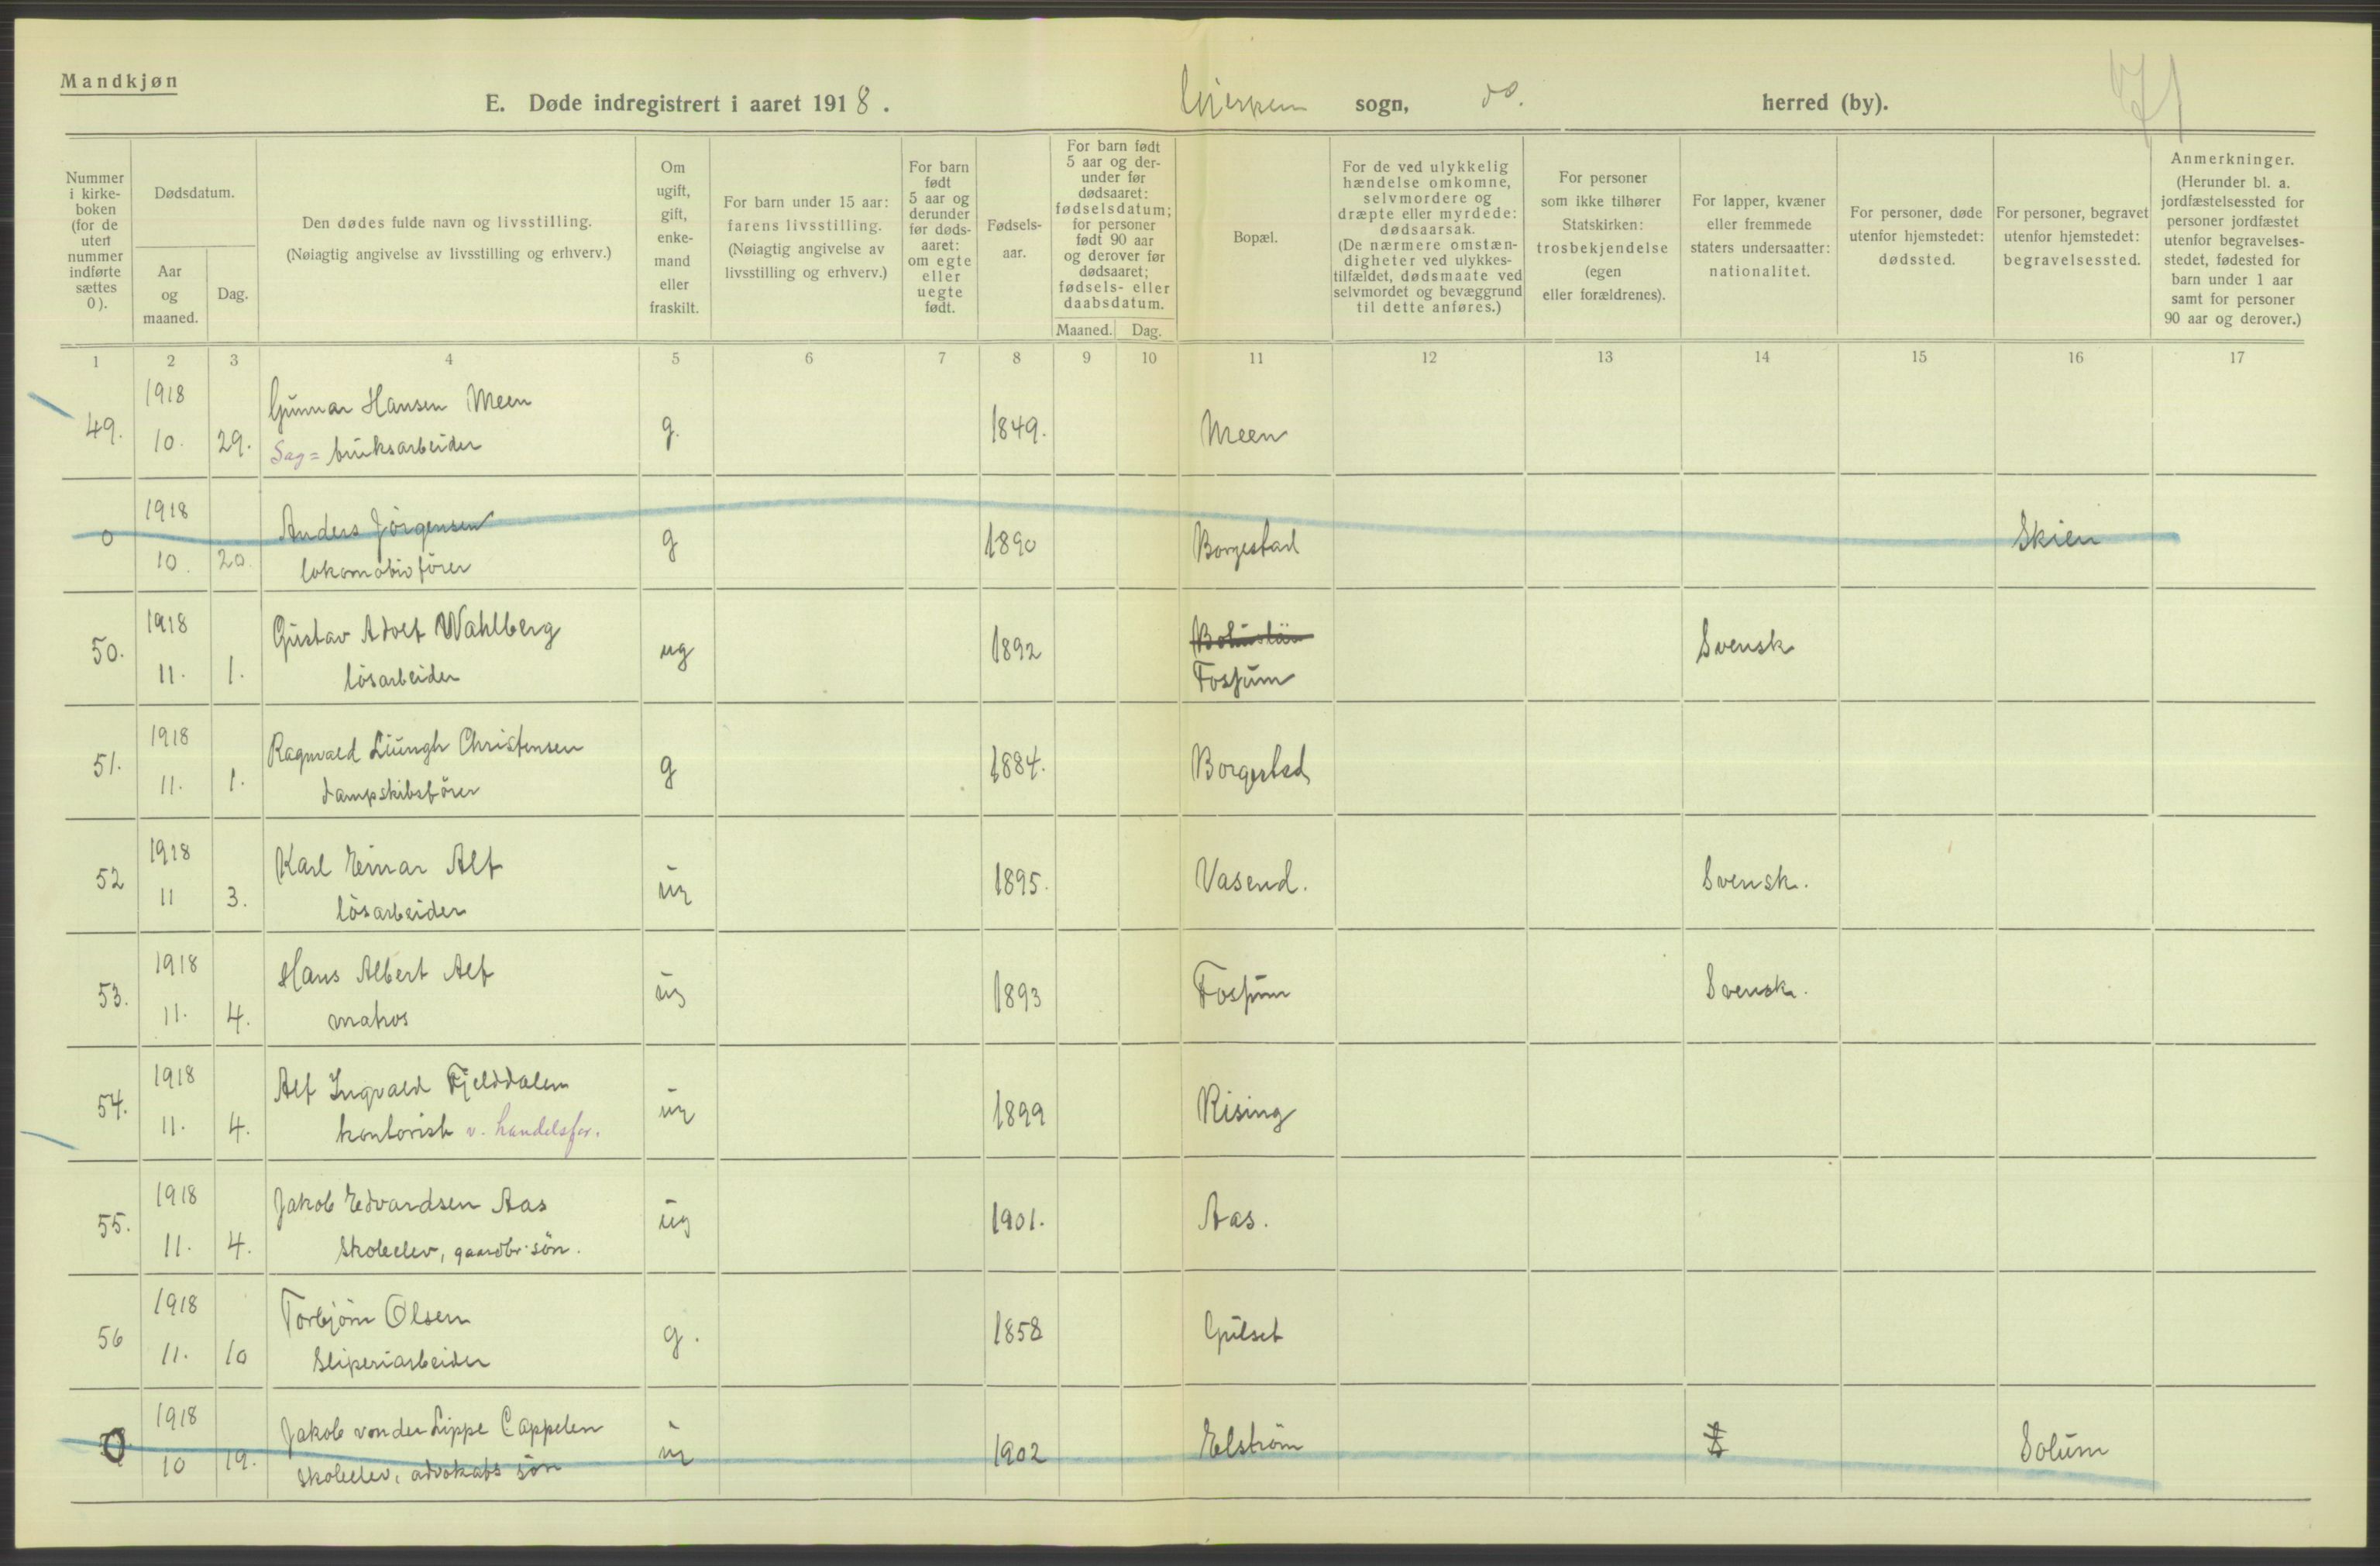 Mandkjøn
E. Døde indregistrert i aaret 1918. Gjerpen sogn, do. herred (by).
71
Nummer i kirke-boken (for de utert nummer indførte sættes 0).
Dødsdatum.
Aar og maaned.
Dag.
Den dødes fulde navn og livsstilling.
(Nøiagtig angivelse av livsstilling og erhverv.)
Om ugift, gift, enke-mand eller fraskilt.
For barn under 15 aar: farens livsstilling.
(Nøiagtig angivelse av livsstilling og erhverv.)
For barn født 5 aar og derunder før døds-aaret: om egte eller uegte født.
Fødsels-aar.
For barn født 5 aar og der-under før dødsaaret: fødselsdatum; for personer født 90 aar og derover før dødsaaret; fødsels- eller daabsdatum.
Maaned. Dag.
Bopæl.
For de ved ulykkelig hændelse omkomne, selvmordere og dræpte eller myrdede: dødsaarsak.
(De nærmere omstæn-digheter ved ulykkes-tilfældet, dødsmaate ved selvmordet og bevæggrund til dette anføres.)
For personer som ikke tilhører Statskirken: trosbekjendelse (egen eller forældrenes).
For lapper, kvæner eller fremmede staters undersaatter: nationalitet.
For personer, døde utenfor hjemstedet: dødssted.
For personer, begravet utenfor hjemstedet: begravelsessted.
Anmerkninger.
(Herunder bl. a. jordfæstelsessted for personer jordfæstet utenfor begravelses-stedet, fødested for barn under 1 aar samt for personer 90 aar og derover.)
1 2 3 4 5 6 7 8 9 10 11 12 13 14 15 16 17
1918 Gunnar Hansen Meen
49. 10. 29. Sag= bruksarbeider g. 1849. Meen
1918 Anders Jörgensen
0 10. 20. lokomotivförer g 1890 Borgestad Skien
1918 Gustav Adolf Wahlberg Bohuslän
50. 11. 1. lösarbeider ug 1892 Fossum Svensk
1918 Ragnvald Liungh Christensen
51. 11. 1. dampskibsförer g 1884. Borgestad
1918 Karl Einar Alf
52 11 3. lösarbeider ug 1895. Vasend. Svensk.
1918 Hans Albert Alf
53. 11. 4. matros ug 1893 Fossum Svensk.
1918 Alf Ingvald Fjelddalen
54. 11. 4. kontorist v. handelsfor. ug 1899 Rising
1918 Jakob Edvardsen Aas
55. 11. 4. Skoleelev, gaardbr. sön. ug 1901. Aas.
1918 Torbjörn Olsen
56 11. 10 Sliperiarbeider g. 1858 Gulset
1918 Jakob von der Lippe Cappelen
0 10 19. skoleelev, advokats sön ug 1902 Elström Solum